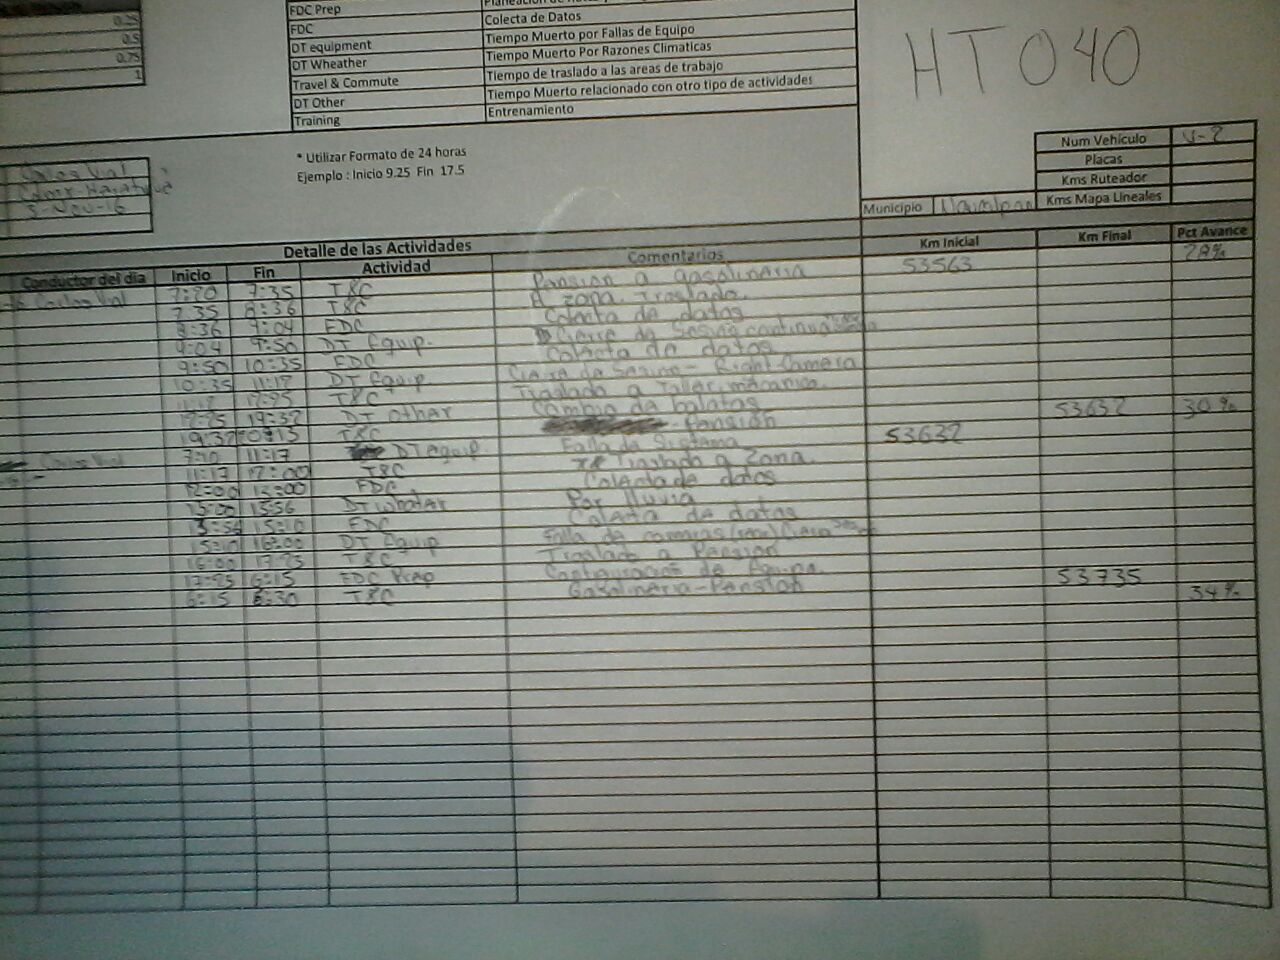 0.25
0.5
0.75
1
FDC Prep
FDC Colecta de Datos
DT equipment Tiempo Muerto por Fallas de Equipo
DT Wheather Tiempo Muerto Por Razones Climaticas
Travel & Commute Tiempo de traslado a las areas de trabajo
DT Other Tiempo Muerto relacionado con otro tipo de actividades
Training Entrenamiento
HT040
* Utilizar Formato de 24 horas
Ejemplo : Inicio 9.25 Fin 17.5
Carlos Vial
3-Nov-16
Num Vehículo V-2
Placas
Kms Ruteador
Municipio Kms Mapa Lineales
Detalle de las Actividades
Conductor del dia Inicio Fin Actividad Comentarios Km Inicial Km Final Pct Avance
Carlos Vial 7:20 7:35 T&C Pension a gasolineria 53563 28%
7:35 8:36 T&C A zona Traslado
8:36 9:04 FDC Colecta de datos
9:04 9:50 DT Equip. Cierre de Sesion continua
9:50 10:35 FDC Colecta de datos
10:35 11:17 DT Equip Cierre de Sesion - Right Camera
11:17 T&C Traslado a Taller mecanico
19:37 DT other Cambio de balatas 53632 30%
19:37 T&C Pension
Carlos Vial 7:10 11:17 DT equip Falla de Sistema 53632
11:17 12:00 T&C Traslado a Zona
12:00 13:00 FDC Colecta de datos
13:00 13:56 DT Por lluvia
15:10 FDC Colecta de datos
15:10 16:00 DT Equip Falla de camaras
16:00 17:25 T&C Traslado a Pension
17:25 6:15 FDC Prep Configuracion de Equipo 53735
6:15 6:30 T&C Gasolineria-Pension 34%